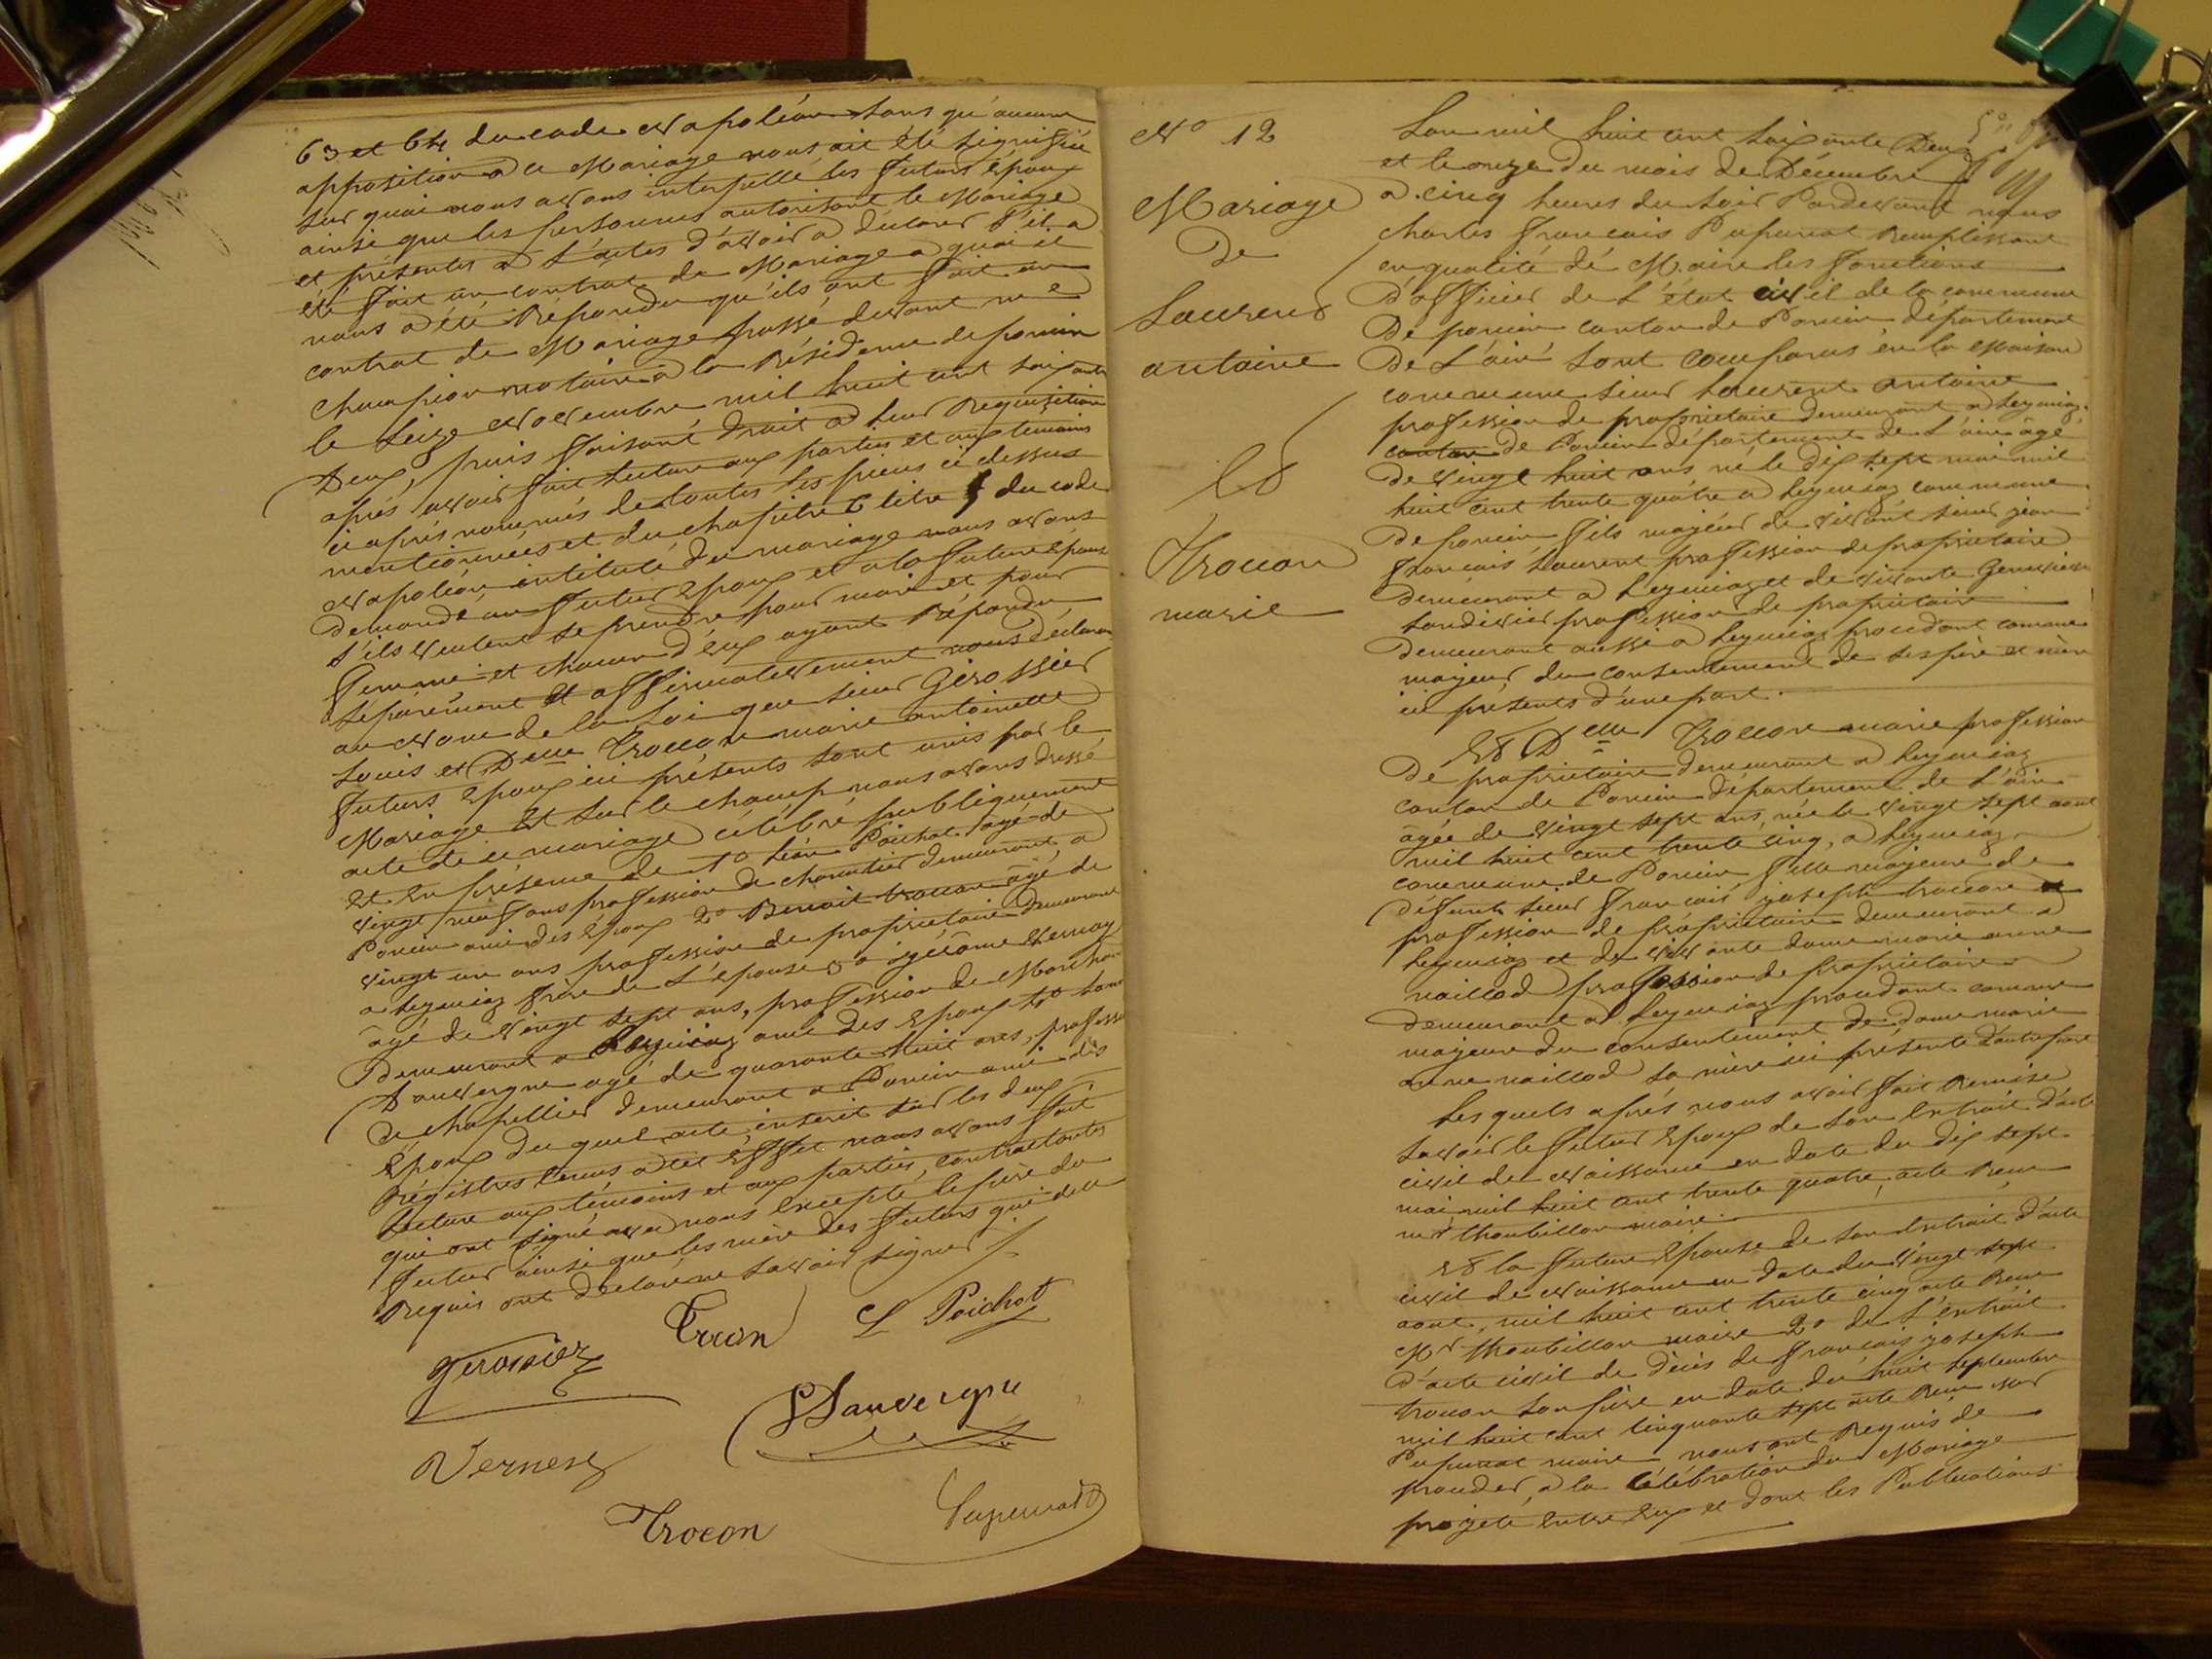 63 et 64 du code Napoléon sans qu'aucune
opposition a ce Mariage nous ait été signifiée
sur quoi nous avons interpellé les futurs époux
ainsi que les personnes autorisant le Mariage
et présentes a l'actes d'avoir a déclarer s'il a
été fait un contrat de Mariage a quoi il
nous a été répondu qu'ils ont fait un
contrat de Mariage passé devant me
Champion notaire a la Résidence de poncin
le seize Novembre mil huit cent soixante
Deux, puis faisant droit a leur Requisition
après avoir fait lecture aux parties et aux temoins
ci après nommés de toutes les pièces ci dessus
mentionnées et du chapitre 6 titre 5 du code
Napoléon, intitulé du mariage nous avons
demandé au futur Epoux et a la future Epouse
s'ils veulent se prendre pour mari et pour
femme et chacun d'eux ayant Répondu
séparément et affirmativement nous déclarons
au Nom de la Loi que sieur Girossier
Louis et Delle Trocon marie antoinette
futurs Epoux ici présents sont unis par le
Mariage Et sur le champ nous avons dressé
acte de ce mariage célébré publiquement
Et en présence de 1o Léon Poichot agé de
vingt neuf ans profession de charcutier demeurant a
Poncin ami des Epoux 2o Benoit trocon agé de
vingt un ans profession de propriétaire demeurant
a leymiaz frère de L'épouse 3o jérôme Vernay
âgé de vingt sept ans, profession de Marchand
Demeurant a Leymiaz ami des Epoux 4o
D'auvergne agé de quarante huit ans, profession
de chapellier demeurant a Poncin ami des
Epoux du quel acte, inscrit sur les deux
Régistres tenus a cet Effet nous avons fait
Lecture aux témoins et aux parties, contractantes
qui ont signé avec nous Excepté le père du
futur ainsi que les mère des futurs qui de ce
Requis ont déclaré ne savoir signer
Trocon L Poichot
Girossier
Dauvergne
Vernay
Trocon Pupunat
No 12
Mariage
De
Laurent
antoine
Et
Trocon
marie
Lan mil huit cent soixante Deux
et le onze du mois de Décembre
a cinq heures du soir Pardevant nous
Charles francois Pupunat Remplissant
en qualité de Maire les fonctions
D'officier de L'état civil de la commune
De poncin canton de Poncin département
De L'ain sont comparus en la Maison
commune sieur Laurent antoine
profession de propriétaire demeurant a leymiaz
canton de Poncin département de L'ain âgé
De vingt huit ans né le dix sept mai mil
huit cent trente quatre a leymiaz commune
De poncin fils majeur de vivant sieur jean
francois Laurent profession de propriétaire
demeurant a Leymiaz et de vivante Genevieve
profession de propriétaire
Demeurant aussi a leymiaz procédant comme
majeur du consentement de ses père et mère
ici présents d'une part.
Et Delle Trocon marie profession
De propriétaire demeurant a leymiaz
canton de Poncin département de L'ain
agée de vingt sept ans, née le vingt sept aout
mil huit cent trente cinq, a leymiaz
commune de Poncin fille majeure de
Défunt sieur francois joseph trocon
profession de propriétaire demeurant a
Leymiaz et de vivante dame marie anne
naillod profession de propriétaire
demeurant a leymiaz procédant comme
majeure du consentement de dame marie
anne naillod sa mère ici présente d'autre part
Les quels après nous avoir fait Remise
savoir le futur Epoux de son Extrait d'acte
civil de Naissance en date du dix sept
mai mil huit cent trente quatre, acte Reçu
mr thombillon maire.
Et la future Epouse de son Extrait d'acte
civil de Naissance en date du vingt sept
aout, mil huit cent trente cinq acte Reçu
Mr thombillon maire 2o de L'extrait
d'acte civil de décès de francois joseph
trocon son père en date du huit septembre
mil huit cent cinquante sept acte Reçu mr
Pupunat maire nous ont Requis de
procéder, a la célébration du Mariage
projeté entre Eux et dont les Publications